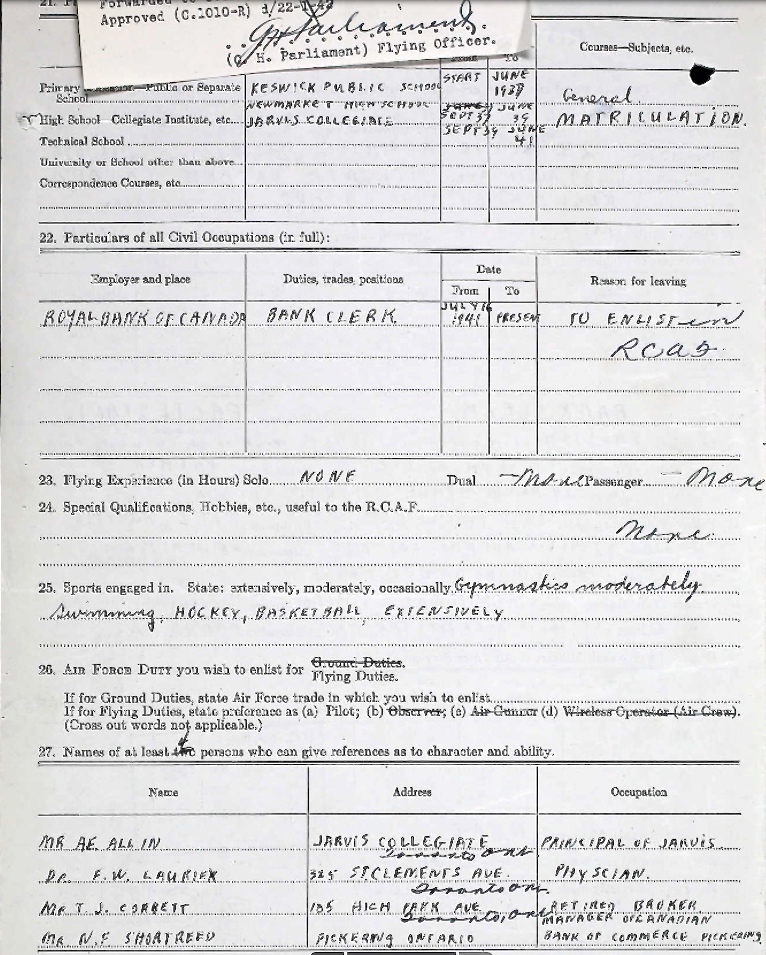 Approved (C.1010-R) d/22-1-42
(G. H. Parliament) Flying Officer.
To
Courses—Subjects, etc.
Primary School—Public or Separate School KESWICK PUBLIC SCHOOL START JUNE 1937 General
NEWMARKET HIGH SCHOOL SEPT 37 JUNE 39
High School Collegiate Institute, etc. JARVIS COLLEGIATE SEPT 39 JUNE 41 MATRICULATION.
Technical School
University or School other than above
Correspondence Courses, etc.
22. Particulars of all Civil Occupations (in full):
Employer and place Duties, trades, positions Date From To Reason for leaving
ROYAL BANK OF CANADA BANK CLERK. JULY 16 1941 PRESENT TO ENLIST in
RCAF
23. Flying Experience (in Hours) Solo NONE Dual None Passenger None
24. Special Qualifications, Hobbies, etc., useful to the R.C.A.F.
None
25. Sports engaged in. State: extensively, moderately, occasionally. Gymnastics moderately
Swimming, HOCKEY, BASKETBALL, EXTENSIVELY
26. AIR FORCE DUTY you wish to enlist for Ground Duties.
Flying Duties.
If for Ground Duties, state Air Force trade in which you wish to enlist
If for Flying Duties, state preference as (a) Pilot; (b) Observer; (c) Air Gunner (d) Wireless Operator (Air Crew).
(Cross out words not applicable.)
27. Names of at least two 4 persons who can give references as to character and ability.
Name Address Occupation
MR AE ALLIN JARVIS COLLEGIATE PRINCIPAL OF JARVIS.
Toronto Ont
DR. F.W. 325 ST CLEMENTS AVE. PHYSCIAN.
Toronto Ont.
MR T. J. CORBETT 135 HIGH PARK AVE RETIRED BROKER
Toronto, Ont MANAGER OF CANADIAN
MR N.F SHORTREED PICKERING ONTARIO BANK OF COMMERCE PICKERING